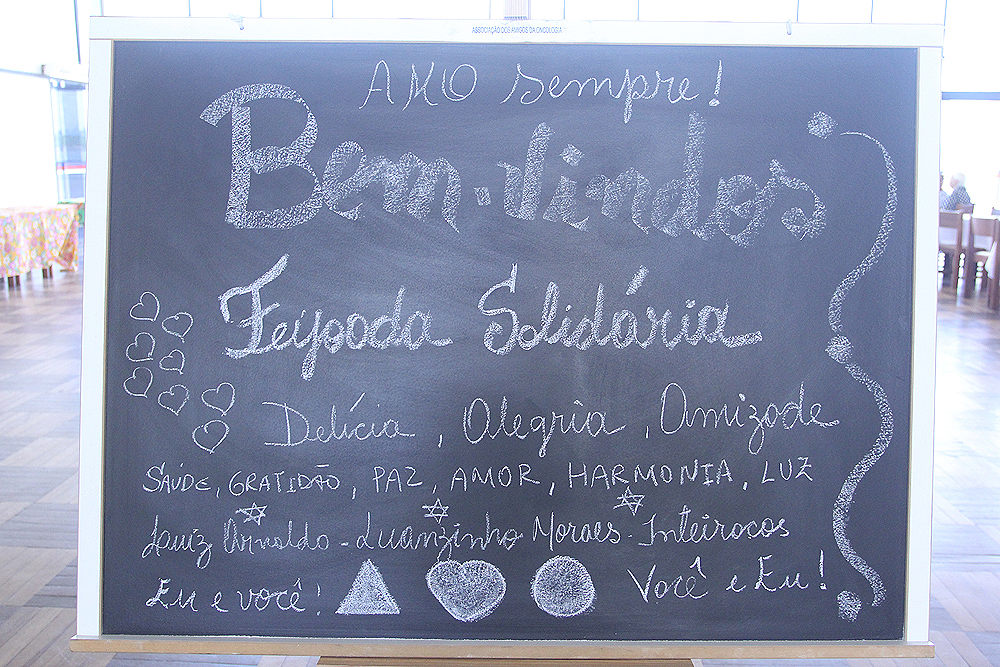 ASSOCIAÇÃO DOS AMIGOS DA ONCOLOGIA
AMO sempre!
Bem-vindos
Feijoada Solidária
Delícia, Alegria, Amizade
SAÚDE, GRATIDÃO, PAZ, AMOR, HARMONIA, LUZ
Luiz Arnaldo - Luanzinho Moraes - Inteirocos
Eu e você! Você e Eu!